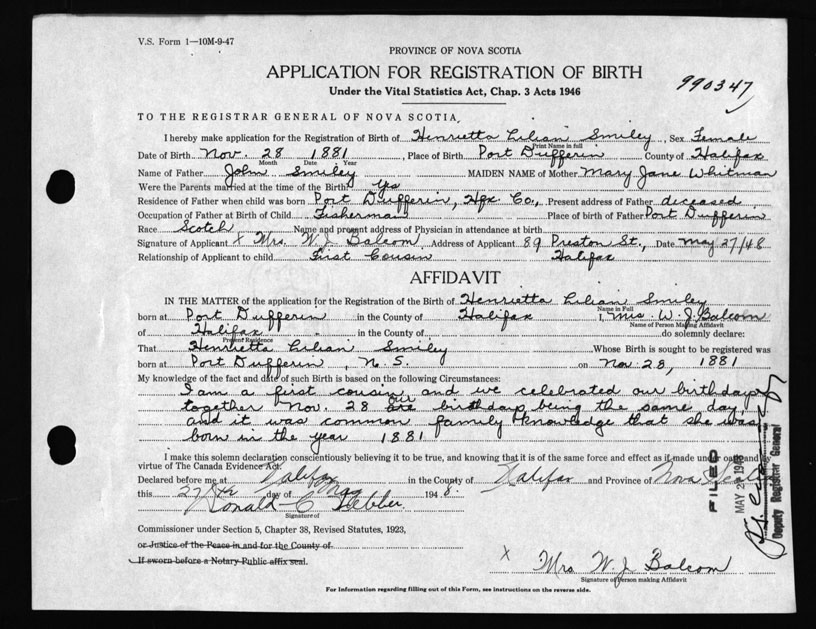 V.S. Form 1—10M-9-47
PROVINCE OF NOVA SCOTIA
APPLICATION FOR REGISTRATION OF BIRTH
990347
Under the Vital Statistics Act, Chap. 3 Acts 1946
TO THE REGISTRAR GENERAL OF NOVA SCOTIA,
I hereby make application for the Registration of Birth of Henrietta Lilian Smiley, Sex Female
Print Name in full
Date of Birth Nov. 28 1881, Place of Birth Port Dufferin County of Halifax
Month Date Year
Name of Father John Smiley MAIDEN NAME of Mother Mary Jane Whitman
Were the Parents married at the time of the Birth? Yes
Residence of Father when child was born Port Dufferin, Hfx Co., Present address of Father deceased
Occupation of Father at Birth of Child Fisherman Place of birth of Father Port Dufferin
Race Scotch Name and present address of Physician in attendance at birth
Signature of Applicant x Mrs. W. J. Balcom, Address of Applicant 89 Preston St., Date May 27/48
Relationship of Applicant to child First Cousin Halifax
AFFIDAVIT
IN THE MATTER of the application for the Registration of the Birth of Henrietta Lilian Smiley
Name in Full
born at Port Dufferin in the County of Halifax I, Mrs. W. J. Balcom
Name of Person Making Affidavit
of Halifax in the County of do solemnly declare:
Present Residence
That Henrietta Lilian Smiley Whose Birth is sought to be registered was
born at Port Dufferin, N.S. on Nov. 28, 1881
My knowledge of the fact and date of such Birth is based on the following Circumstances:
I am a first cousin and we celebrated our birthdays
together Nov. 28 our birthday being the same day,
and it was common family knowledge that she was
born in the year 1881
I make this solemn declaration conscientiously believing it to be true, and knowing that it is of the same force and effect as if made under oath and by
virtue of The Canada Evidence Act.
Declared before me at Halifax in the County of Halifax and Province of Nova Scotia
this 27th day of May 1948.
Donald C
Signature of
Commissioner under Section 5, Chapter 38, Revised Statutes, 1923,
or Justice of the Peace in and for the County of
If sworn before a Notary Public affix seal.
x Mrs W. J. Balcom
Signature of Person making Affidavit
For Information regarding filling out of this Form, see instructions on the reverse side.
FILED
MAY 1948
Deputy Registrar General